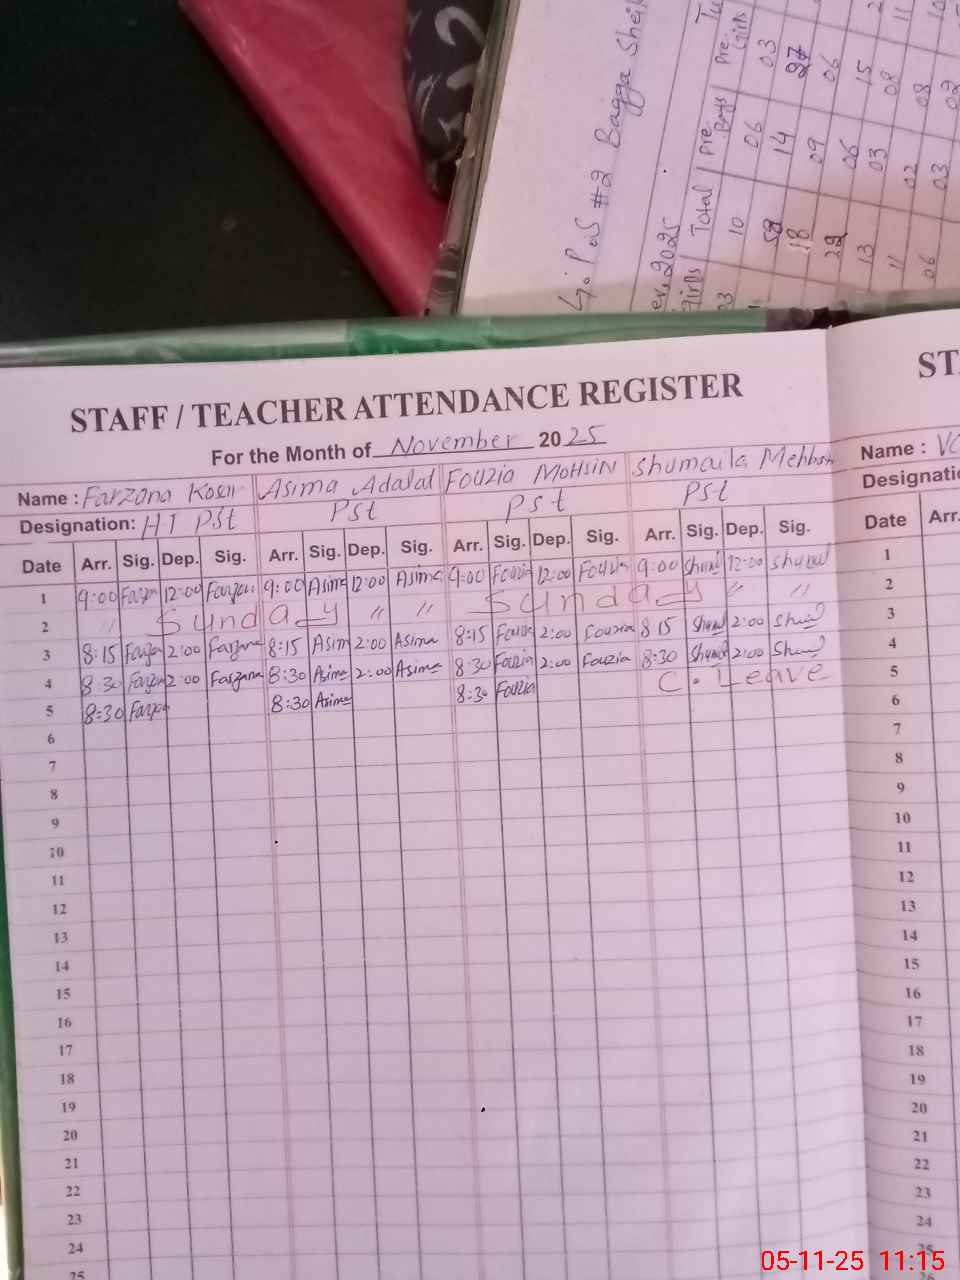 G.P.S #2 Bagga Sheik
2025
girls Total Pre. Boys Pre. Girls
03 10 06 03
58 14 27
18 09 06
22 06 15
13 03 08
11 02 08
06 03
STAFF / TEACHER ATTENDANCE REGISTER
For the Month of November 2025
Name : Farzana Kosar Asima Adalat Fouzia Mohsin Shumaila Mehboob
Designation: HT PSt PSt PSt PSt
Date Arr. Sig. Dep. Sig. Arr. Sig. Dep. Sig. Arr. Sig. Dep. Sig. Arr. Sig. Dep. Sig.
1 9:00 Farzan 12:00 Farzan 9:00 Asima 12:00 Asima 9:00 Fouzia 12:00 Fouzia 9:00 Shumi 12:00 Shumi
2 " Sunday " " Sunday " "
3 8:15 Farzan 2:00 Farzana 8:15 Asim 2:00 Asima 8:15 Fouzia 2:00 Fouzia 8:15 Shumi 2:00 Shumi
4 8:30 Farzan 2:00 Farzana 8:30 Asima 2:00 Asima 8:30 Fouzia 2:00 Fouzia 8:30 Shumi 2:00 Shumi
5 8:30 Farzan 8:30 Asima 8:30 Fouzia C. Leave
6
7
8
9
10
11
12
13
14
15
16
17
18
19
20
21
22
23
24
25
ST
Name :
Date Arr.
1
2
3
4
5
6
7
8
9
10
11
12
13
14
15
16
17
18
19
20
21
22
23
24
25
05-11-25 11:15